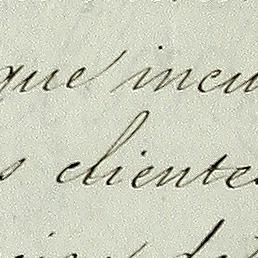 que incu
s clientes